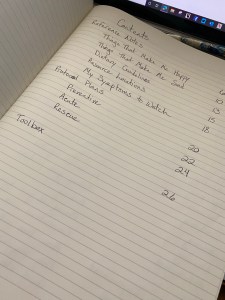 Contents
Reference Notes
Things That Make Me Happy 10
Things That Make Me Sad 13
Dietary Guidelines 15
Resource Locations 18
My Symptoms to Watch
Protocol Plans 20
Preventive 22
Acute 24
Rescue
Toolbox 26